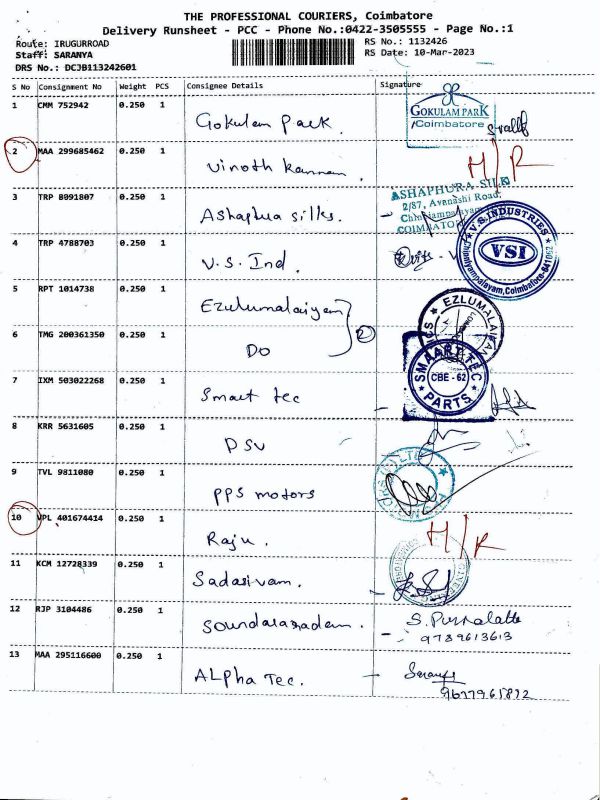 THE PROFESSIONAL COURIERS, Coimbatore
Delivery Runsheet - PCC - Phone No.:0422-3505555 - Page No.:1
Route: IRUGURROAD
Staff: SARANYA
DRS No.: DCJB113242601
RS No.: 1132426
RS Date: 10-Mar-2023
S No Consignment No Weight PCS Consignee Details Signature
1 CMM 752942 0.250 1 Gokulam Park.
GOKULAM PARK
/Coimbatore
2 MAA 299685462 0.250 1 Vinoth Kannan. H/R
3 TRP 8091807 0.250 1 Ashaphua silks.
ASHAPHURA SILK
2/87, Avanashi Road,
Chinniampalayam
COIMBATORE
4 TRP 4788703 0.250 1 V.S. Ind.
V.S. INDUSTRIES
VSI
Chinniyampalayam, Coimbatore-641062
5 RPT 1014738 0.250 1 Ezulumalaiyan
EZLUMALAIYAN
6 TMG 200361350 0.250 1 DO 2
7 IXM 503022268 0.250 1 Smart tec
SMAART TEC
CBE - 62
PARTS
8 KRR 5631605 0.250 1 DSV
9 TVL 9811080 0.250 1 PPS motors
10 VPL 401674414 0.250 1 Raju. H/R
11 KCM 12728339 0.250 1 Sadasivam.
12 RJP 3104486 0.250 1 Soundararadem.
9789613613
13 MAA 295116600 0.250 1 ALpha Tec.